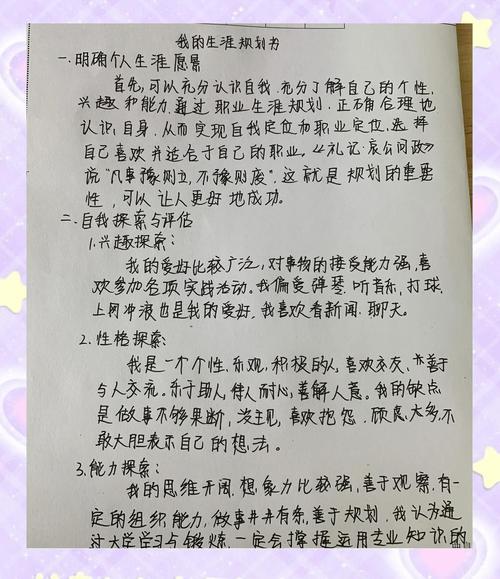 我的生涯规划书
一.明确个人生涯愿景
首先,可以充分认识自我.充分了解自己的个性,
兴趣和能力.通过职业生涯规划.正确合理地
认识自身.从而实现自我定位和职业定位.选择
自己喜欢并适合于自己的职业。《礼记·哀公问政》
说"凡事豫则立,不豫则废".这就是规划的重要
性,可以让人更好地成功。
二.自我探索与评估
1.兴趣探索:
我的爱好比较广泛,对事物的接受能力强,喜
欢参加各项实践活动。我偏爱弹琴.听音乐,打球.
上网冲浪也是我的爱好,我喜欢看新闻.聊天。
2.性格探索:
我是一个个性.乐观,积极的人,喜欢交友,亦善于
与人交流。乐于助人,待人耐心,善解人意。我的缺点
是做事不够果断,没主见,喜欢抱怨.顾虑太多,不
敢大胆表示自己的想法。
3.能力探索:
我的思维开阔.想象力比较强,善于观察.有一
定的组织能力,做事井井有条,善于规划.我认为通
过大学学习与锻炼.一定会掌握运用专业知识的